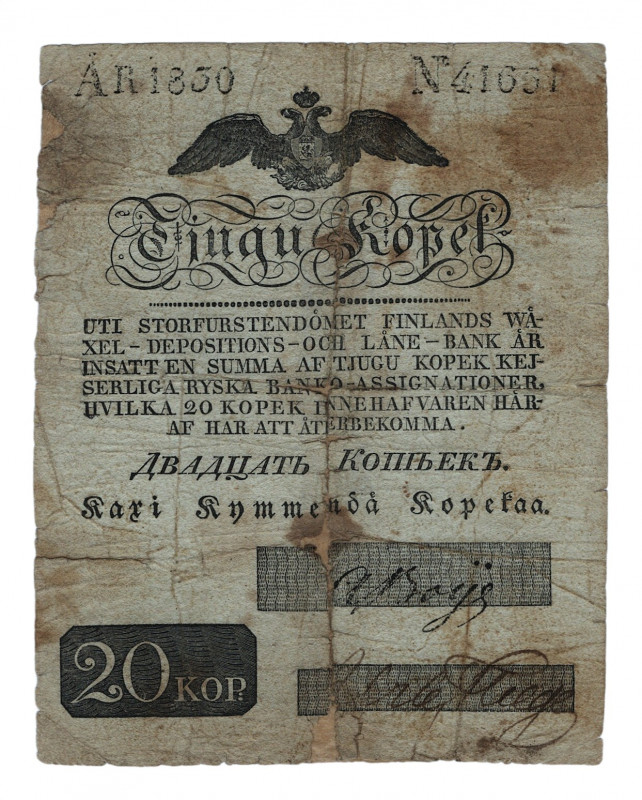 ÅR 1830 Nº 41631
Tjugu Kopek
UTI STORFURSTENDÖMET FINLANDS WÅ-
XEL-DEPOSITIONS-OCH LÅNE-BANK ÄR
INSATT EN SUMMA AF TJUGU KOPEK KEJ-
SERLIGA RYSKA BANKO-ASSIGNATIONER,
HVILKA 20 KOPEK INNEHAFVAREN HÄR-
AF HAR ATT ÅTERBEKOMMA.
ДВАДЦАТЬ КОПѢЕКЪ.
Kaxi Kymmendå Kopekaa.
20 KOP.